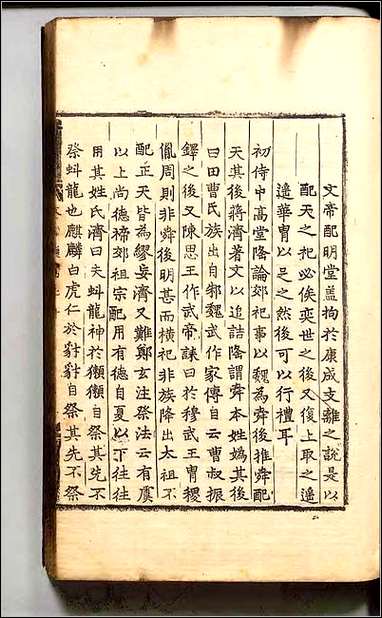 文帝配明堂蓋拘於康成支離之說是以
配天之祀必俟奕世之後又復上取之遥
遥華胄以足之然後可以行禮耳
初侍中高堂隆論郊祀事以魏為舜後推舜配
天其後蔣濟著文以追詰隆謂舜本姓媯其後
曰田曹氏族出自邾魏武作家傳自云曹叔振
鐸之後又陳思王作武帝誄曰於穆武王胄稷
胤周則非舜後明甚而横祀非族降出太祖不
配正天皆為繆妄濟又難鄭玄注祭法云有虞
以上尚德禘郊祖宗配用有德自夏以下往往
用其姓氏濟曰夫蚪龍神於獺獺自祭其先不
祭蚪龍也麒麟白虎仁於豺豺自祭其先不祭